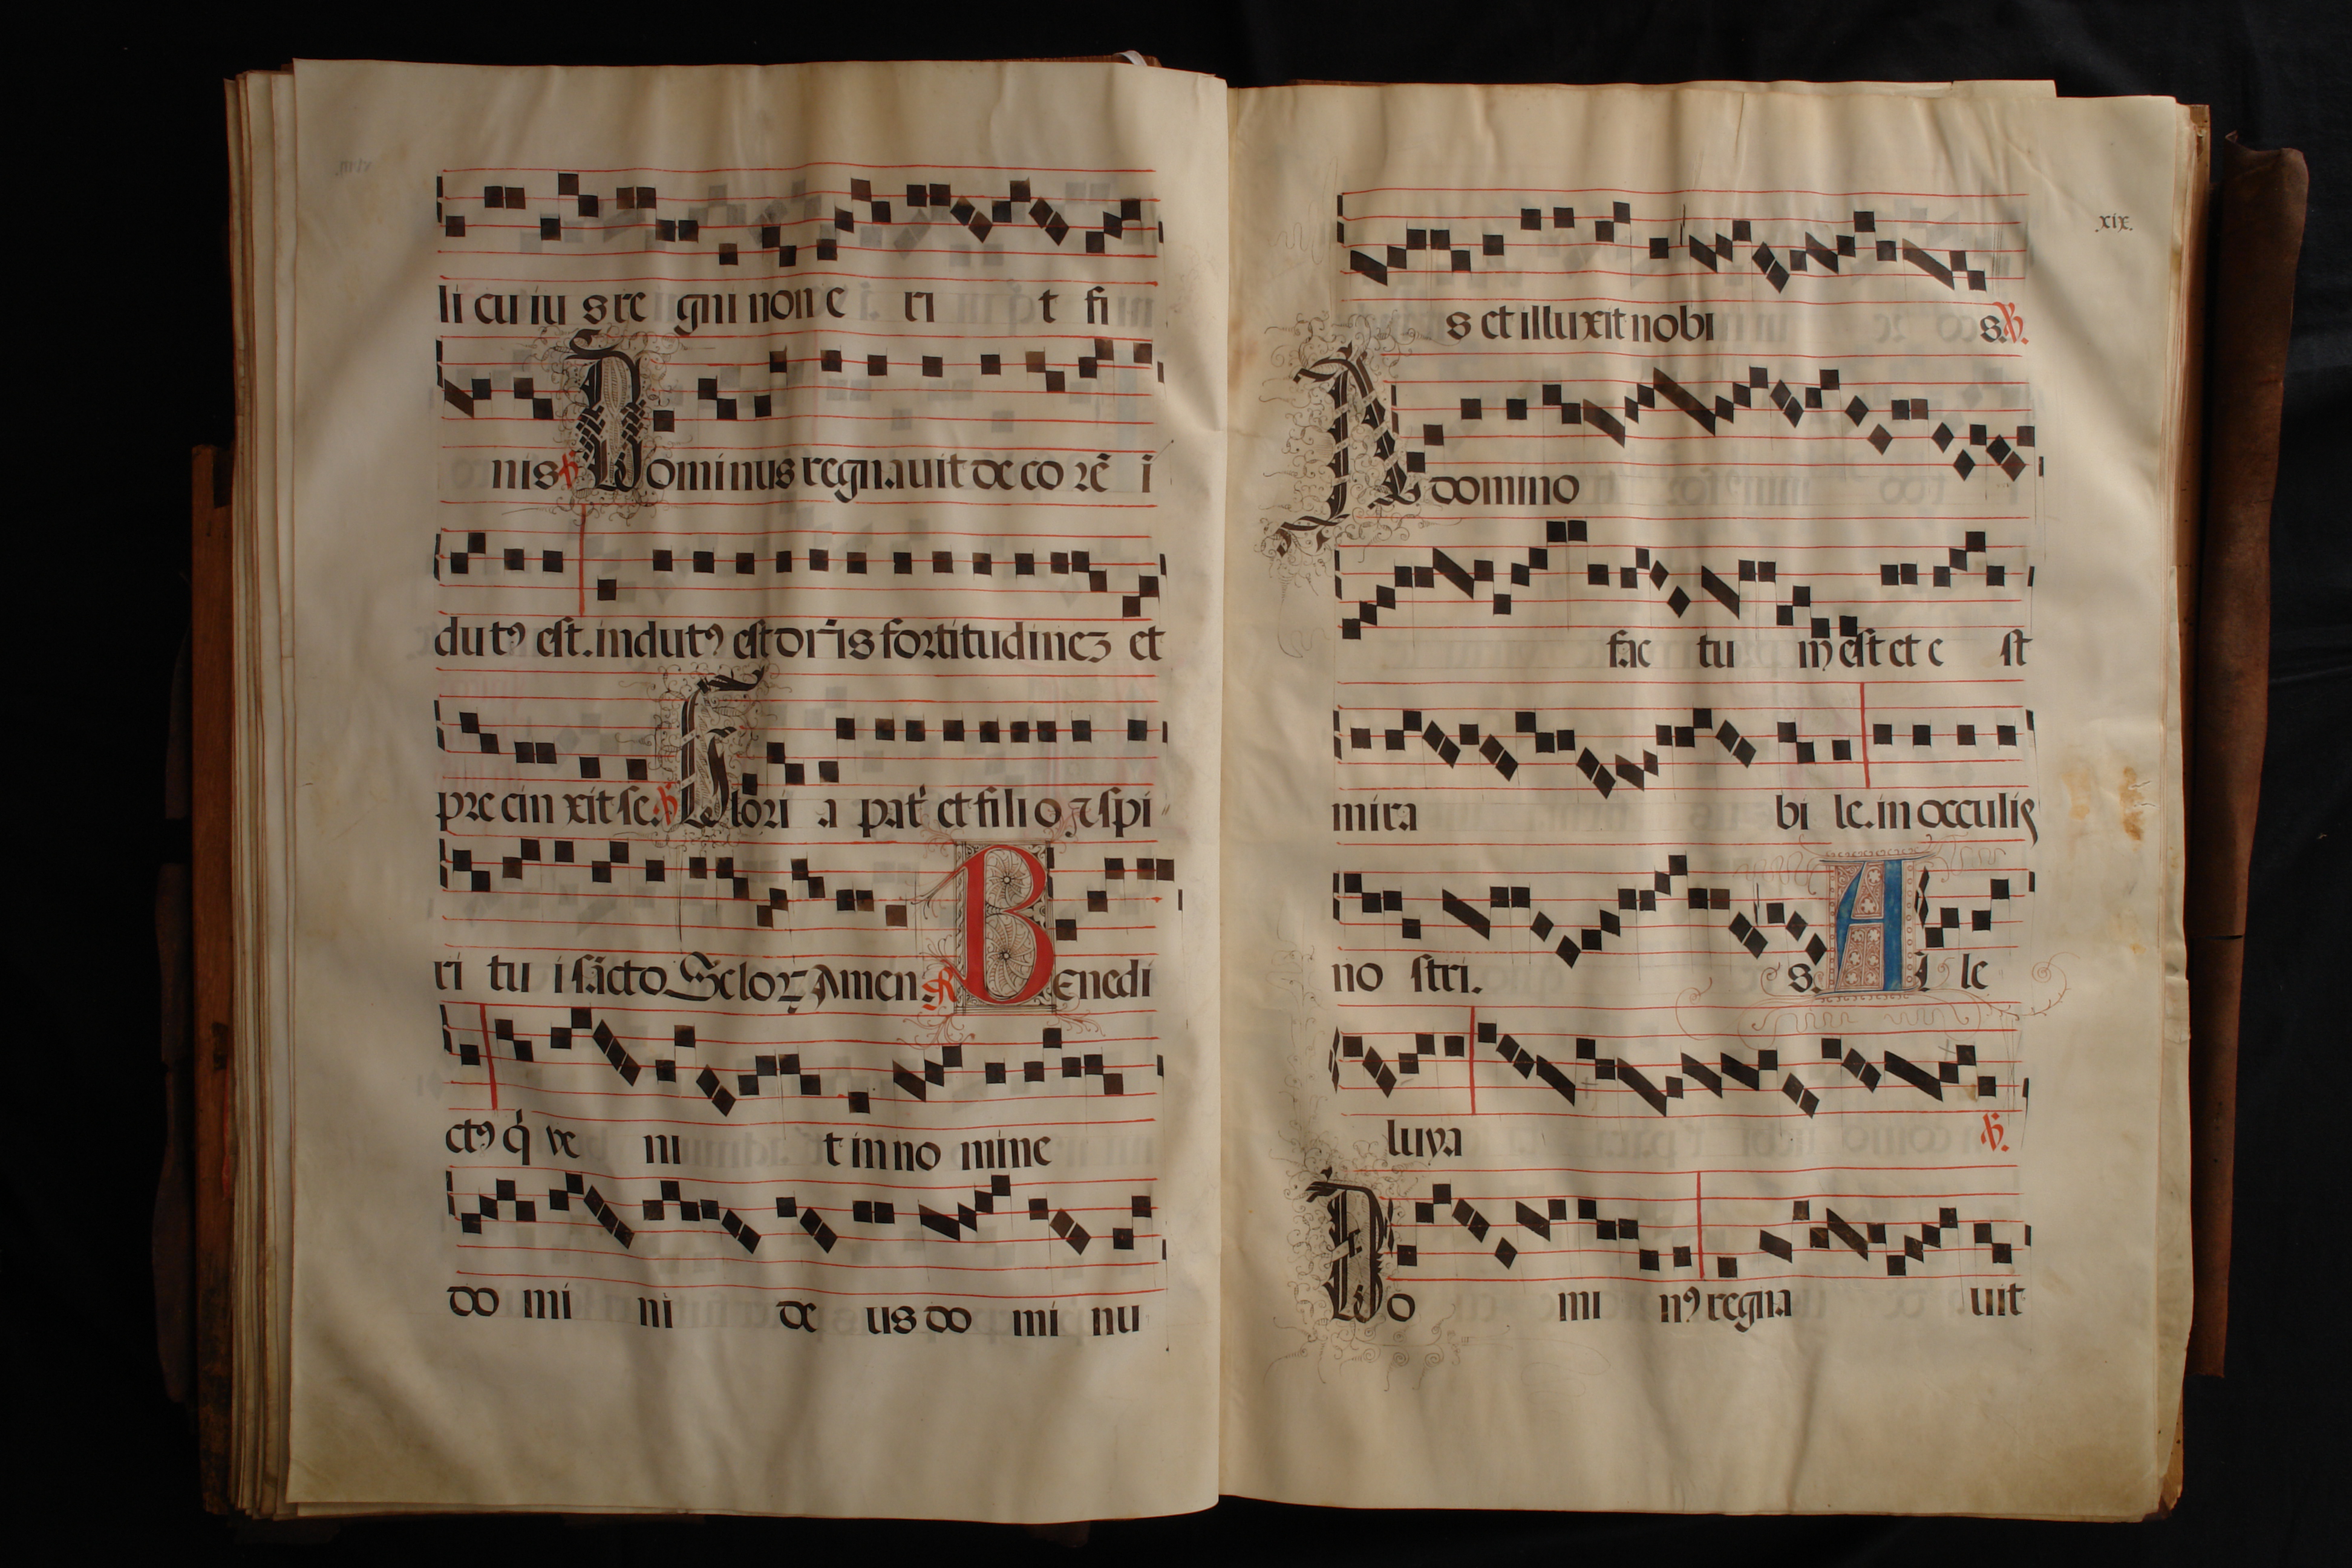 li cu iu s re gni non e ri t fi
nis ℣ Dominus regnauit decorē i
dutꝯ est. indutꝯ est dn̄s fortitudineꝫ et
precinxit se. ℣ Glori a pat̉ et filio ⁊ spi
ri tu i sācto Seloꝝ Amen. ℟ Benedi
ctꝯ q̇ ve ni t in no mine
do mi ni de us do mi nu
xix.
s et illuxit nobi s. ℣.
A domino
fac tu m est et e st
mira bi le. in occulis
no stri. s. Al le
luya ℣.
Do mi nꝯ regna uit